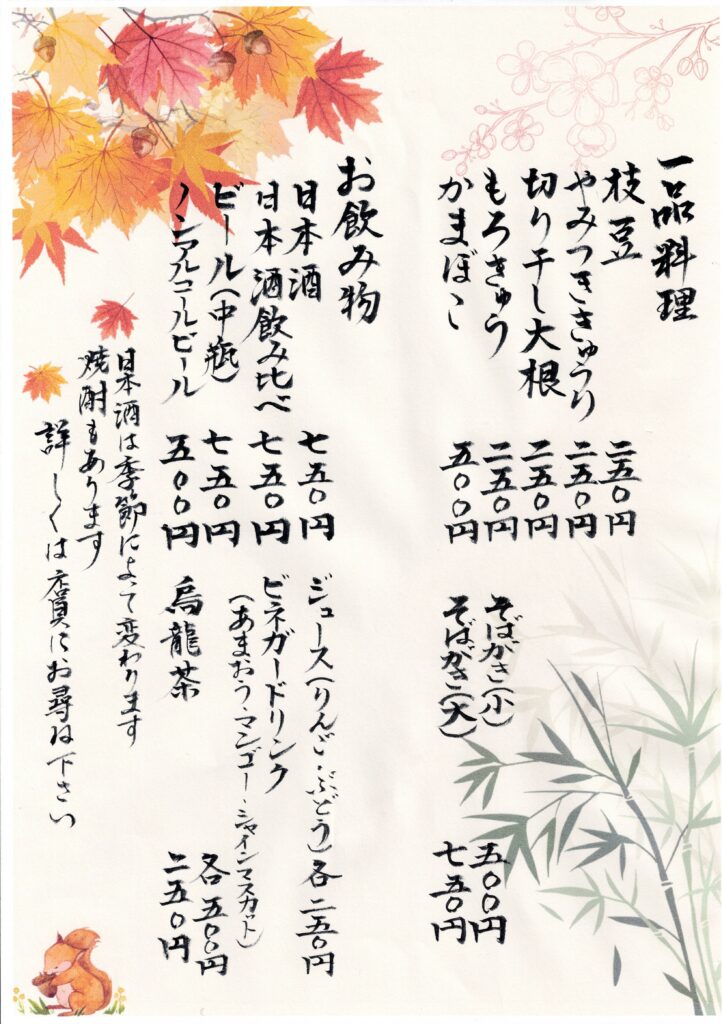 一品料理
枝豆 二五〇円
やみつききゅうり 二五〇円
切り干し大根 二五〇円
もろきゅう 二五〇円
かまぼこ 五〇〇円
そばがき(小) 五〇〇円
そばがき(大) 七五〇円
お飲み物
日本酒 七五〇円
日本酒飲み比べ 七五〇円
ビール(中瓶) 七五〇円
ノンアルコールビール 五〇〇円
ジュース(りんご・ぶどう) 各二五〇円
ビネガードリンク
(あまおう・マンゴー・シャインマスカット) 各五〇〇円
烏龍茶 二五〇円
日本酒は季節によって変わります
焼酎もあります
詳しくは店員にお尋ね下さい